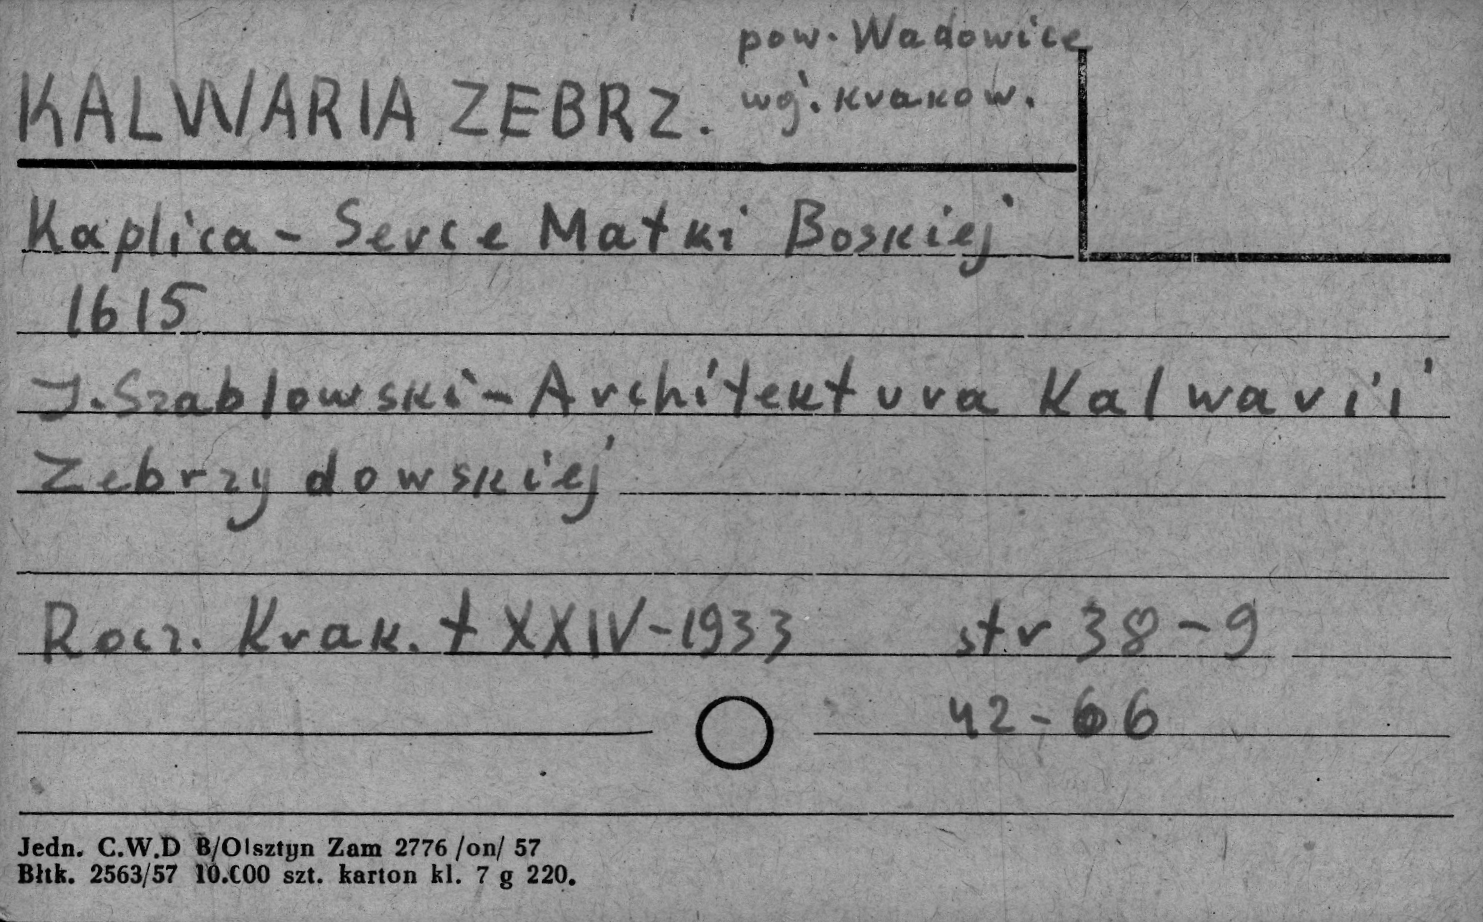 pow. Wadowice
KALWARIA ZEBRZ. woj. krakow.
Kaplica - Serce Matki Boskiej
1615
J. Szablowski - Architektura Kalwarii
Zebrzydowskiej
Rocz. Krak. t XXIV - 1933 str 38 - 9
42 - 66
Jedn. C.W.D B/Olsztyn Zam 2776 /on/ 57
Błtk. 2563/57 10.000 szt. karton kl. 7 g 220.